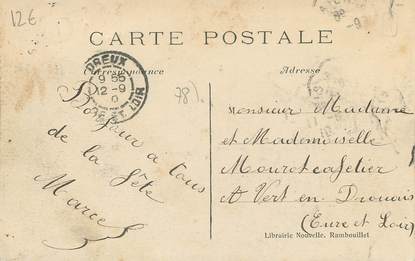 12€
CARTE POSTALE
Correspondance
Adresse
DREUX
9 55
12 -9
0
EURE ET LOIR
78).
Bonjour a tous
de la fête
Marcel
Monsieur Madame
et Mademoiselle
Mourot cafetier
A Vert en Drouais
(Eure et Loir)
Librairie Nouvelle, Rambouillet